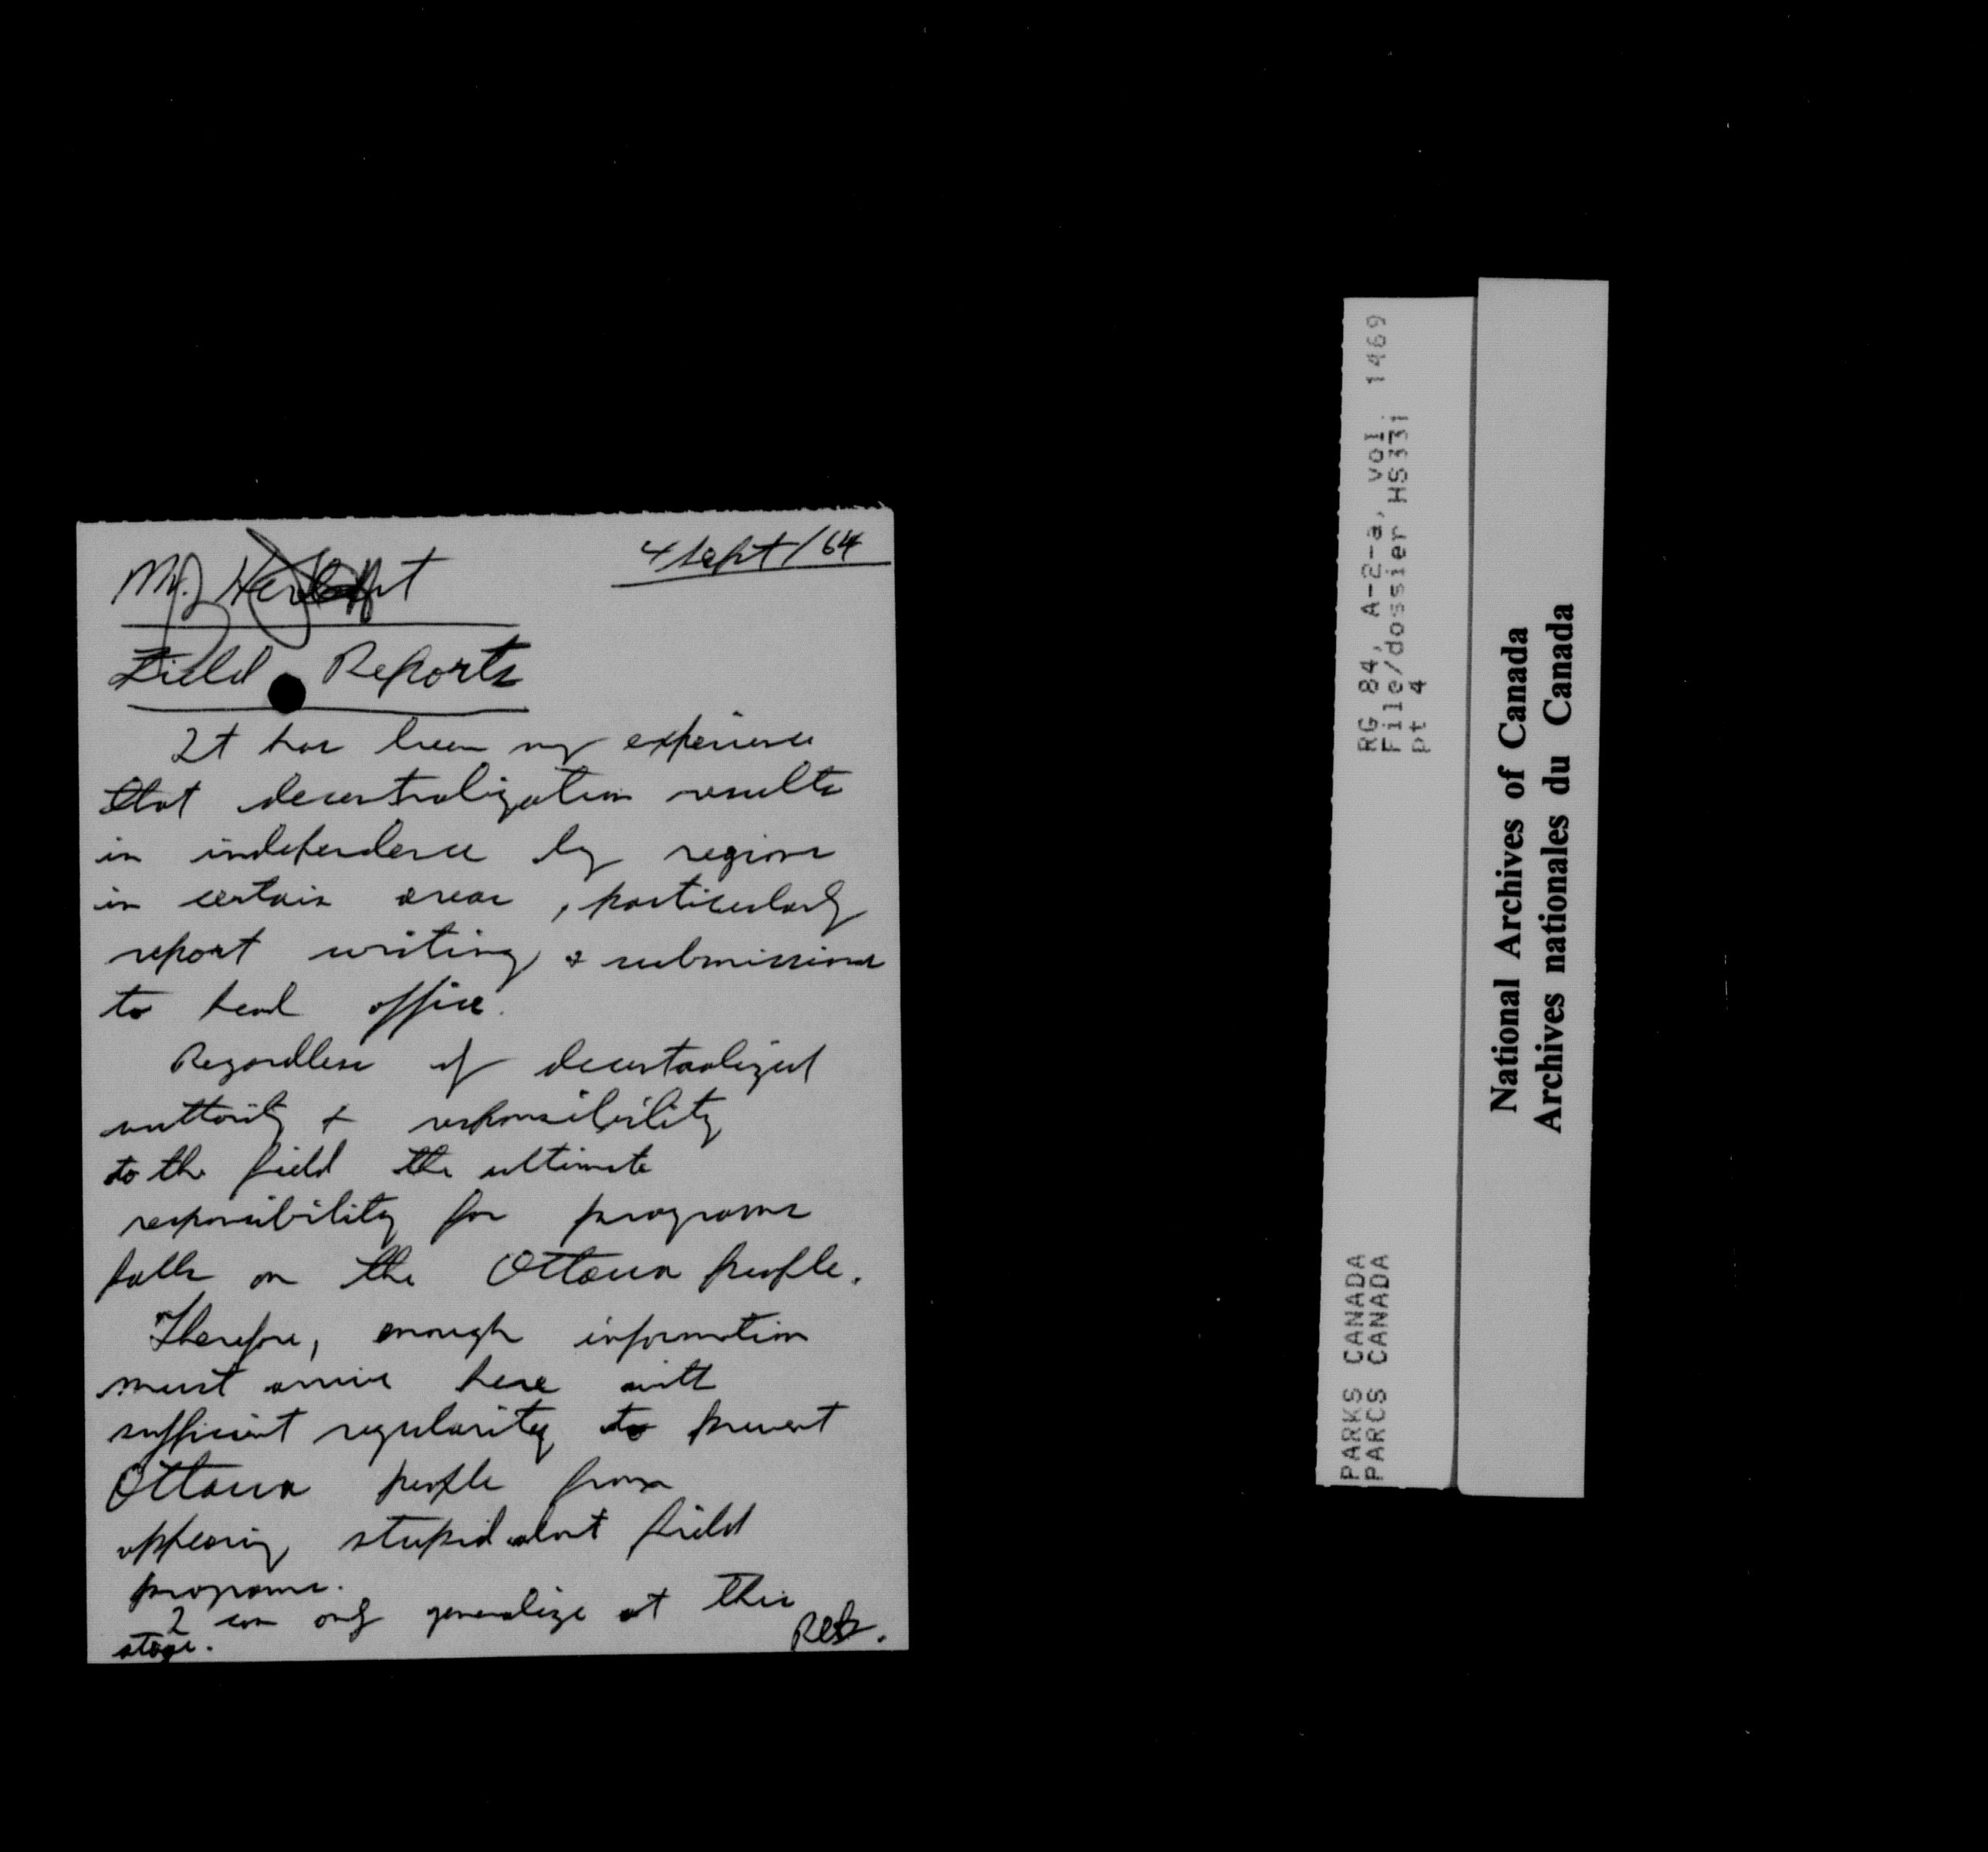 4 Sept/64
Mr.
Field Reports
It has been my experience
that decentralization results
in independence by regions
in certain areas, particularly
report writing & submissions
to head office.
Regardless of decentralized
authority & responsibility
to the field the ultimate
responsibility for programs
falls on the Ottawa people.
Therefore, enough information
must arrive here with
sufficient regularity to prevent
Ottawa people from
appearing stupid about field
programs.
I can only generalize at this
stage.
RG 84, A-2-a, vol. 1469
File/dossier HS331
pt 4
PARKS CANADA
PARCS CANADA
National Archives of Canada
Archives nationales du Canada